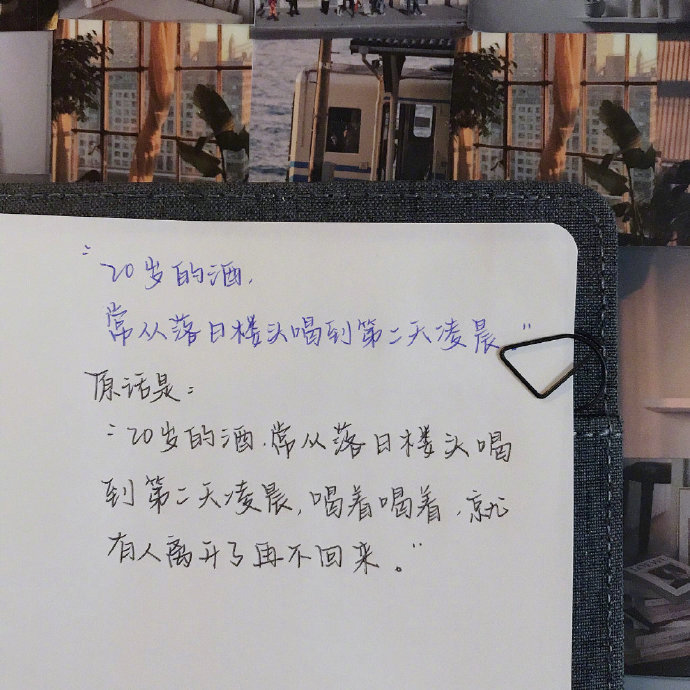 "20岁的酒,
常从落日楼头喝到第二天凌晨。"
原话是:
"20岁的酒,常从落日楼头喝
到第二天凌晨,喝着喝着,就
有人离开了再不回来。"